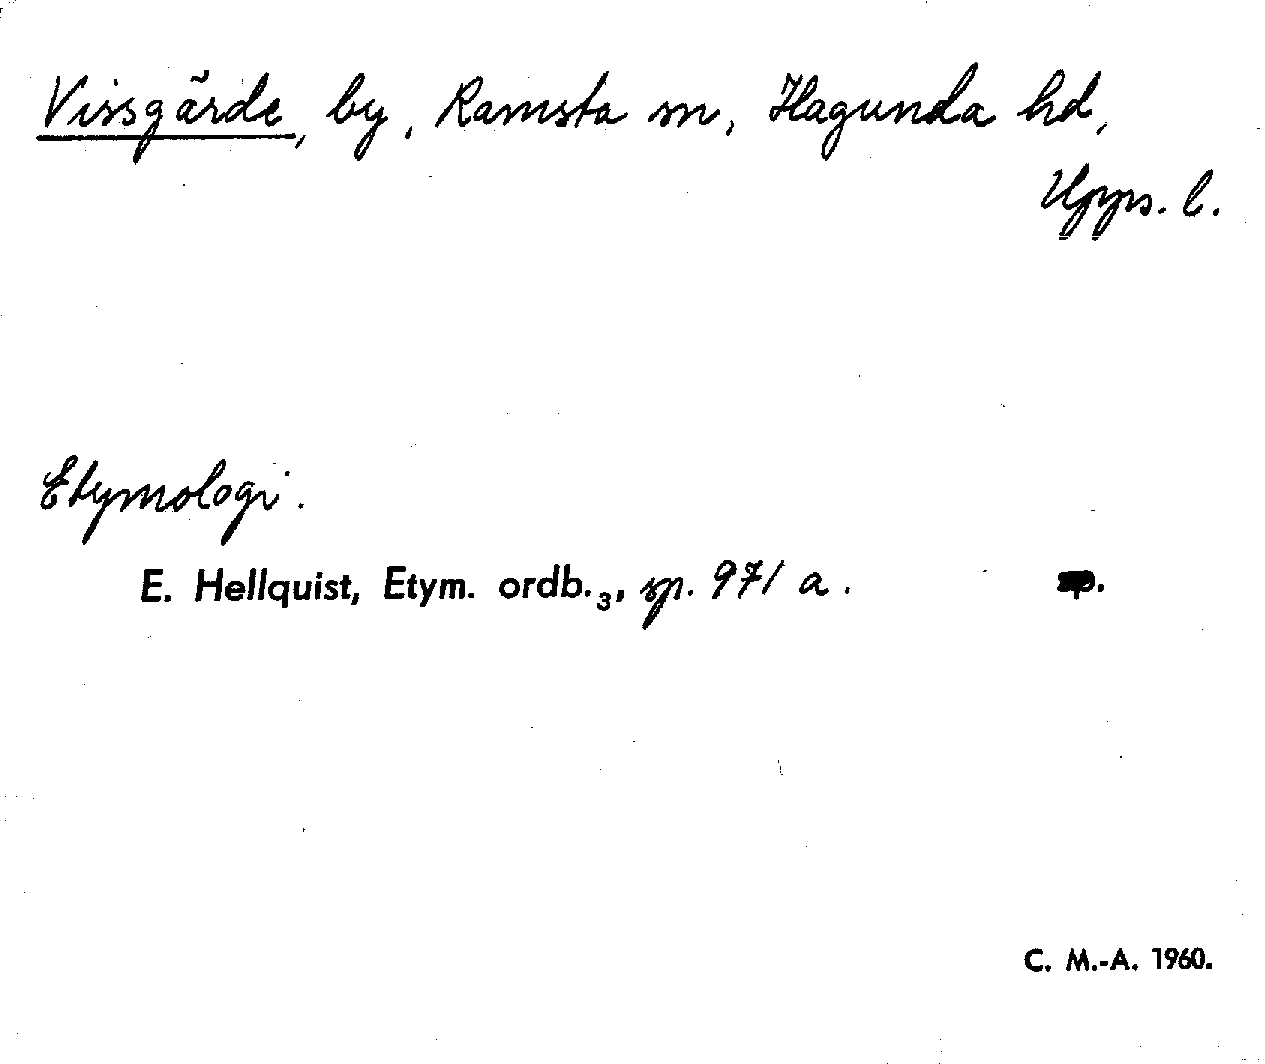 Vissgärde, by, Ramsta sn, Hagunda hd,
Upps. l.
Etymologi.
E. Hellquist, Etym. ordb.₃, sp. 971 a.
C. M.-A. 1960.